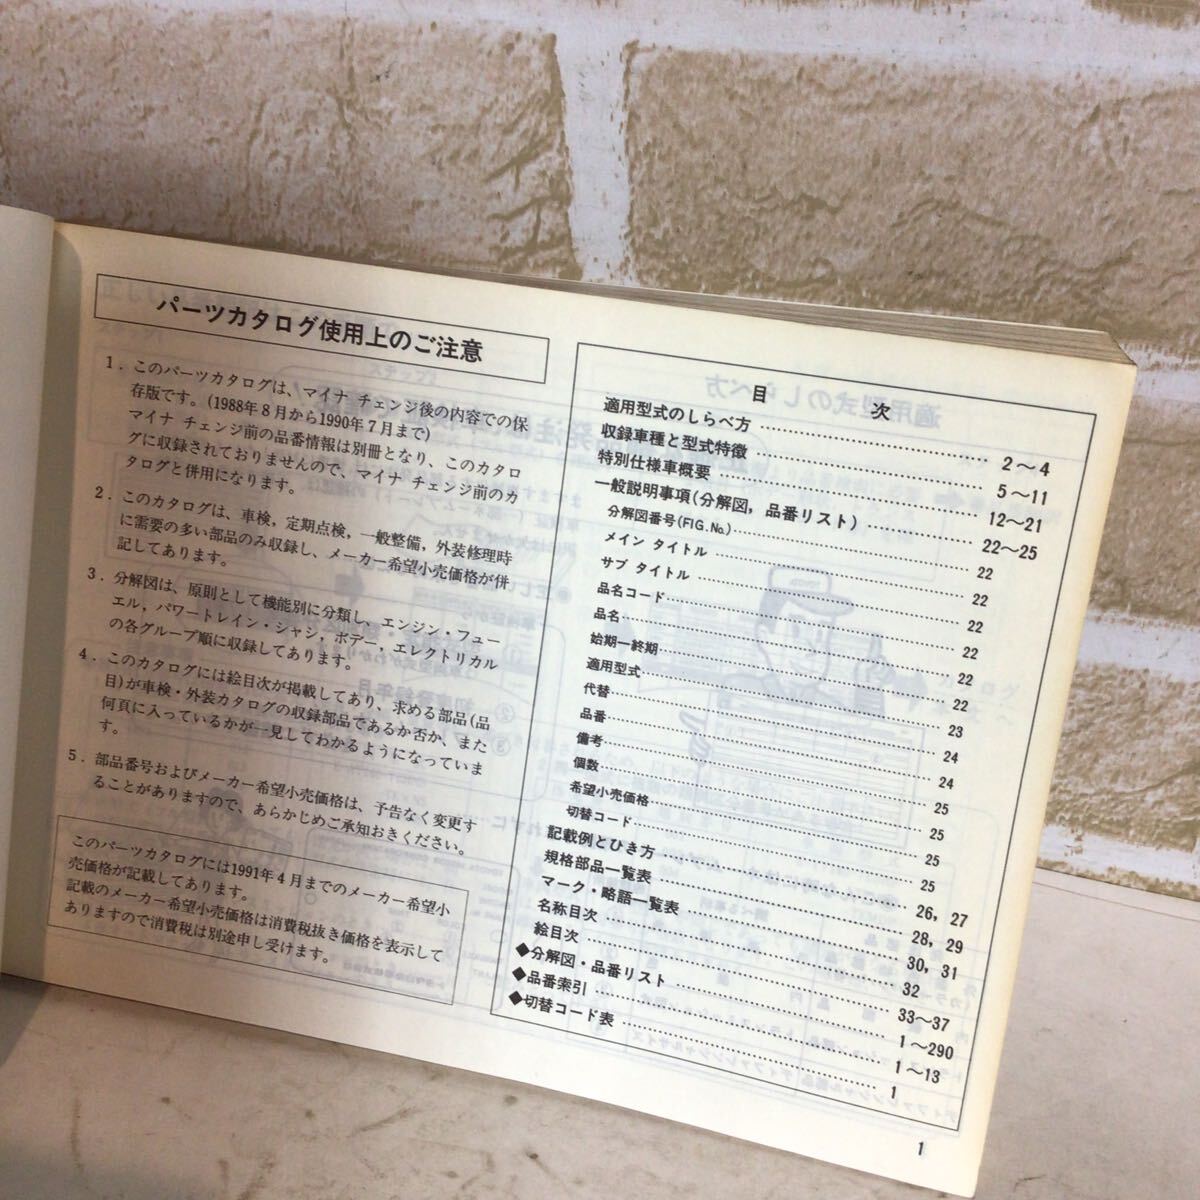 パーツカタログ使用上のご注意
1．このパーツカタログは、マイナ チェンジ後の内容での保
存版です。(1988年8月から1990年7月まで)
マイナ チェンジ前の品番情報は別冊となり、このカタロ
グに収録されておりませんので、マイナ チェンジ前のカ
タログと併用になります。
2．このカタログは、車検，定期点検，一般整備，外装修理時
に需要の多い部品のみ収録し、メーカー希望小売価格が併
記してあります。
3．分解図は、原則として機能別に分類し、エンジン・フュー
エル，パワートレイン・シャシ，ボデー，エレクトリカル
の各グループ順に収録してあります。
4．このカタログには絵目次が掲載してあり、求める部品(品
目)が車検・外装カタログの収録部品であるか否か、また
何頁に入っているかが一見してわかるようになっていま
す。
5．部品番号およびメーカー希望小売価格は、予告なく変更す
ることがありますので、あらかじめご承知おきください。
このパーツカタログには1991年4月までのメーカー希望小
売価格が記載してあります。
記載のメーカー希望小売価格は消費税抜き価格を表示して
ありますので消費税は別途申し受けます。
目 次
適用型式のしらべ方 2〜4
収録車種と型式特徴 5〜11
特別仕様車概要 12〜21
一般説明事項(分解図，品番リスト) 22〜25
分解図番号(FIG.No.) 22
メイン タイトル 22
サブ タイトル 22
品名コード 22
品名 22
始期ー終期 22
適用型式 23
代替 24
品番 24
備考 25
個数 25
希望小売価格 25
切替コード 25
記載例とひき方 26，27
規格部品一覧表 28，29
マーク・略語一覧表 30，31
名称目次 32
絵目次 33〜37
◆分解図・品番リスト 1〜290
◆品番索引 1〜13
◆切替コード表 1
1